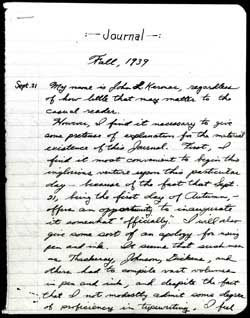 Journal
Fall, 1939
Sept. 21
My name is John L. Kerouac, regardless
of how little that may matter to the
casual reader.
However, I find it necessary to give
some pretense of explanation for the material
existence of this Journal. First, I
find it most convenient to begin this
inglorious venture upon this particular
day - because of the fact that Sept.
21, being the first day of Autumn,
offers an opportunity to inaugurate
it somewhat "officially." I will also
give some sort of an apology for using
pen and ink. It seems that such men
as Thackeray, Johnson, Dickens, and
others had to compile vast volumes
in pen and ink, and despite the fact
that I not modestly admit some degree
of proficiency in typewriting, I feel